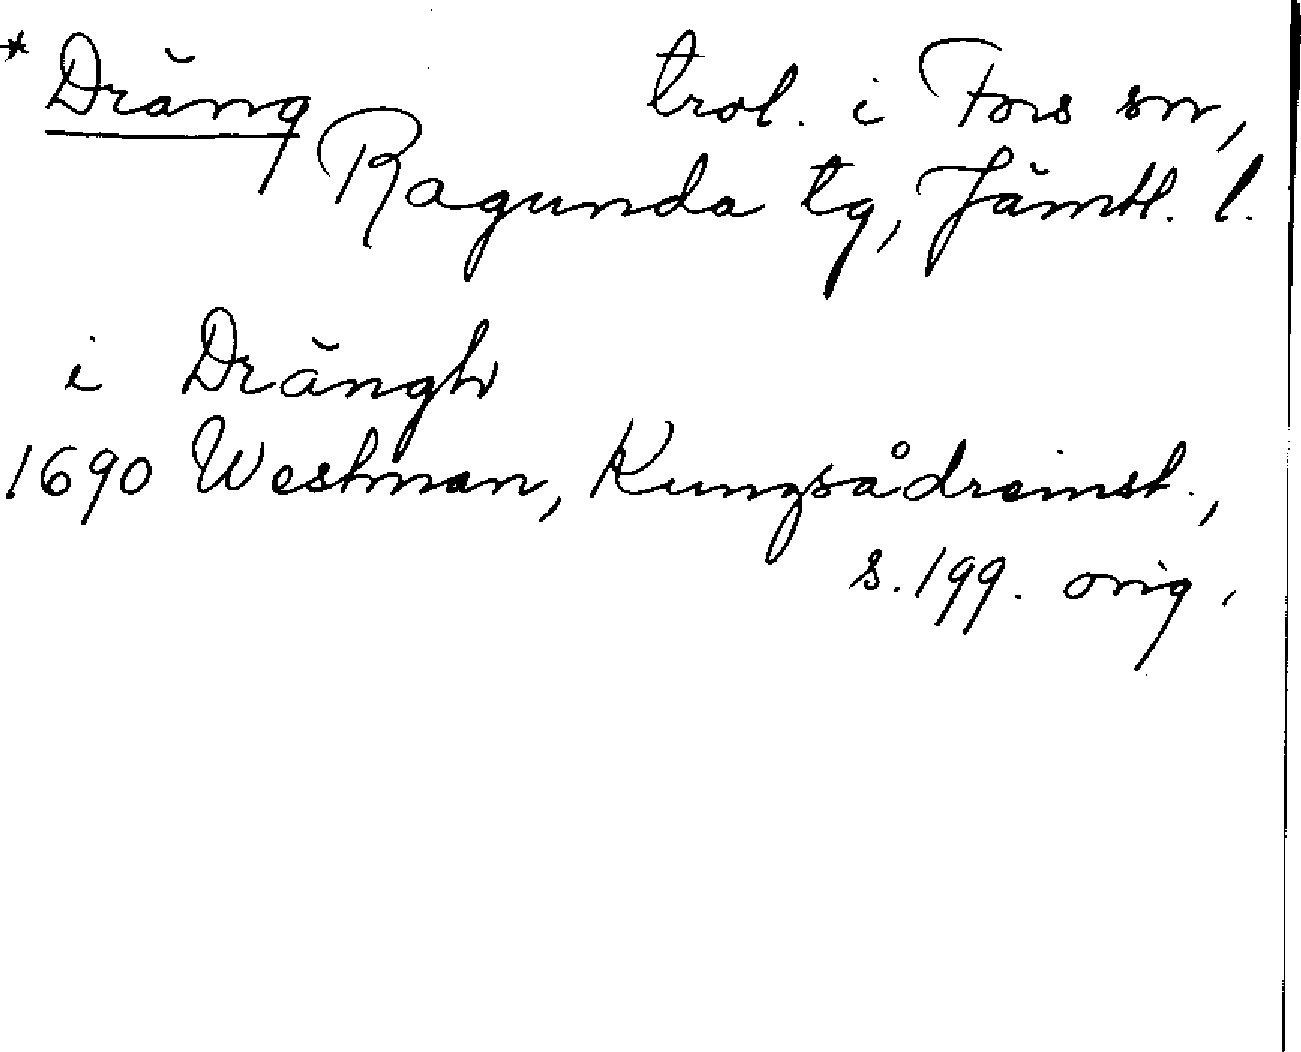 * Dräng trol. i Fors sn,
Ragunda tg, Jämtl. l.
i Drängh
1690 Westman, Kungsådreinst.,
s. 199. orig.